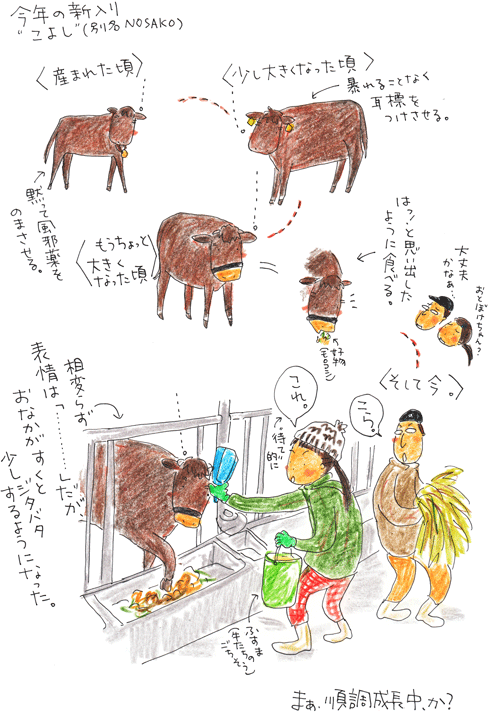 今年の新入り
"こよし"(別名NOSAKO)
〈産まれた頃〉
黙って風邪薬を
のまさせる。
〈少し大きくなった頃〉
暴れることなく
耳標を
つけさせる。
〈もうちょっと
大きく
なった頃〉
=
はッ!と思い出した
ように食べる。
好物
大丈夫
かなぁ…
おとぼけちゃん?
〈そして今。〉
相変らず
表情は「………」だが
おなかがすくと
少しジタバタ
するようになった。
これ。
待て的に
こら。
ふすま
(牛たちの
ごちそう)
まぁ、順調成長中、か?